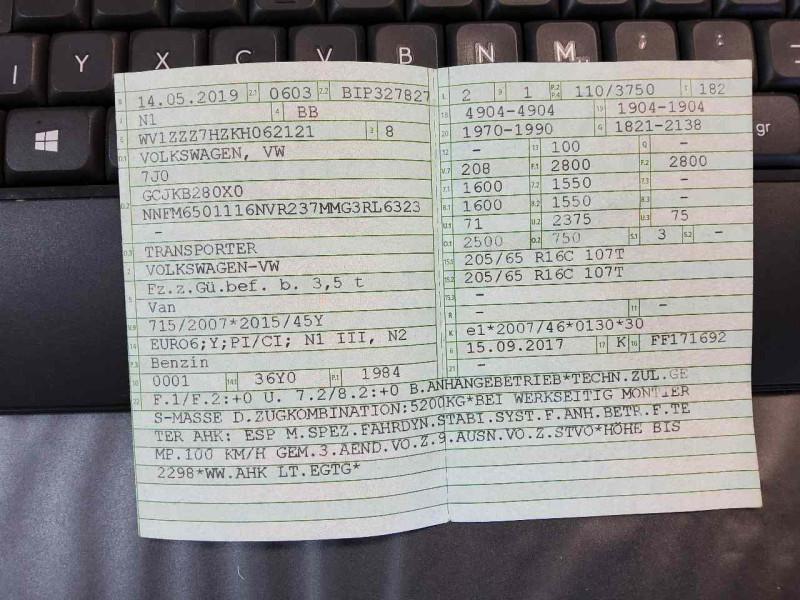 I Y X C V B N M ; :
gr
B 14.05.2019 2.1 0603 2.2 BIP327827
J N1 4 BB
E WV1ZZZ7HZKH062121 3 8
D.1 VOLKSWAGEN, VW
7J0
D.2 GCJKB280X0
NNFM6501116NVR237MMG3RL6323
–
D.3 TRANSPORTER
2 VOLKSWAGEN-VW
Fz.z.Gü.bef. b. 3,5 t
5 Van
V.9 715/2007*2015/45Y
14 EURO6;Y;PI/CI; N1 III, N2
P.3 Benzin
10 0001 14.1 36Y0 P.1 1984
L 2 9 1 P.2 P.4 110/3750 T 182
18 4904-4904 19 1904-1904
20 1970-1990 G 1821-2138
12 – 13 100 Q –
V.7 208 F.1 2800 F.2 2800
7.1 1600 7.2 1550 7.3 –
8.1 1600 8.2 1550 8.3 –
U.1 71 U.2 2375 U.3 75
O.1 2500 O.2 750 S.1 3 S.2 –
15.1 205/65 R16C 107T
15.2 205/65 R16C 107T
15.3 –
R – 11 –
K e1*2007/46*0130*30
6 15.09.2017 17 K 16 FF171692
21 –
22 F.1/F.2:+0 U. 7.2/8.2:+0 B.ANHÄNGEBETRIEB*TECHN.ZUL.GE
S-MASSE D.ZUGKOMBINATION:5200KG*BEI WERKSEITIG MONTIER
TER AHK: ESP M.SPEZ.FAHRDYN.STABI.SYST.F.ANH.BETR.F.TE
MP.100 KM/H GEM.3.AEND.VO.Z.9.AUSN.VO.Z.STVO*HÖHE BIS
2298*WW.AHK LT.EGTG*